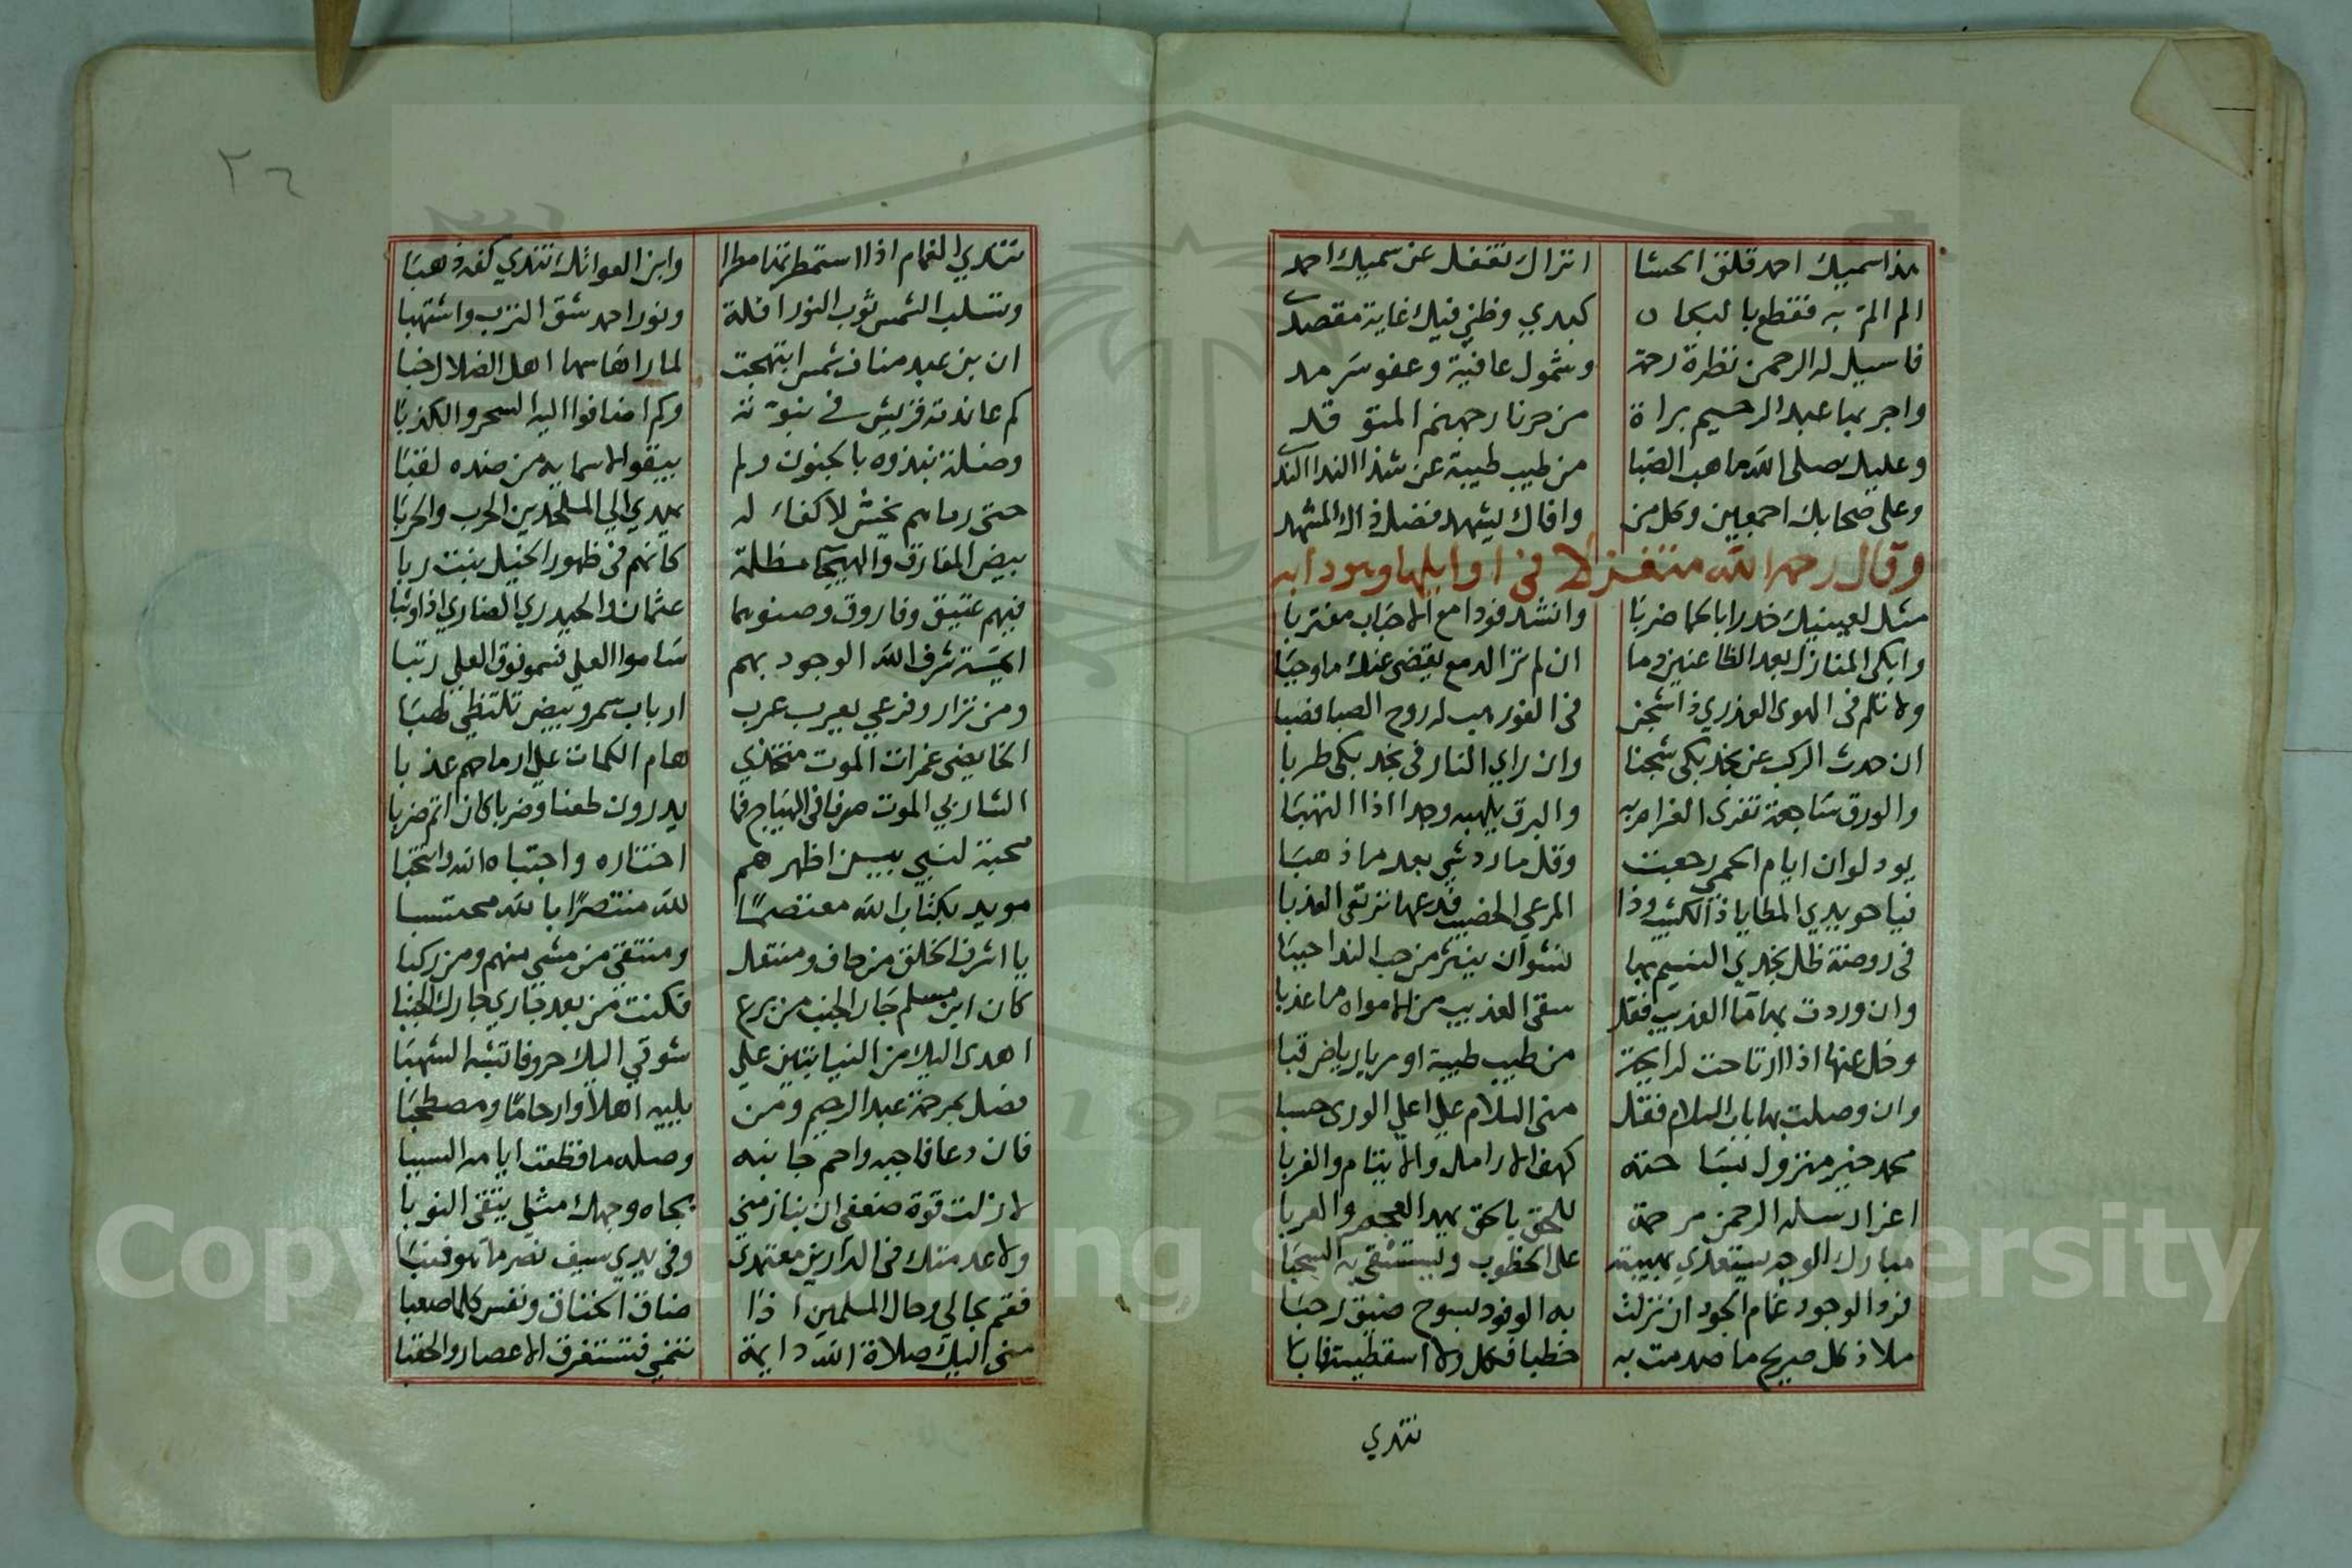 هذا سميك احمد قلق الحشا اتراك تغفل عن سميك احمد
الم الم به فقطع بالبكا كبدي وظني فيك غاية مقصدي
فاسيل له الرحمن نظرة رحمة وشمول عافية وعفو سرمد
واجر بها عبد الرحيم براة من حر نار جهنم المتوقد
وعليك صلى الله ما هب الصبا من طيب طيبة عن شذا الندا الندي
وعلى صحابك اجمعين وكل من وافاك يشهد فضل ذاك المشهد
وقال رحمه الله متغزلا في اوايلها
مثل لعينيك خدرا بالحما ضربا وانشد فودا مع الاحباب مغتربا
وابكي المنازل بعد الظاعنين وما ان لم تر الدمع يقضي عنك ما وجبا
ولا تلم في الهوى العذري ذا شجن في الغور هب له روح الصبا فصبا
ان حدث الركب عن نجد بكى شجنا وان راي النار في نجد بكى طربا
والورق ساجعة تغري الغرام به والبرق يلهبه وجدا اذا التهبا
يود لوان ايام الحمى رجعت وقل ما رد شي بعد ما ذهبا
فيا حويدي المطايا ذا الكثيب وذا المرعى الخصيب فدعها ترتقي العذبا
في روضة ظل نجدي النسيم بها نشوان ينثر من حب الندا حببا
وان وردت بها ما العذيب فقل سقى العذيب من الامواه ما عذبا
وخل عنها اذا ارتاحت لرايحة من طيب طيبة او من يا رياض قبا
وان وصلت بها باب السلام فقل مني السلام على اعلى الورى حسبا
محمد خير منزول بساحته كهف الارامل والايتام والغربا
اعز ارسله الرحمن مرحمة للحق بالحق يهد العجم والعربا
مبارك الوجه يستعدي بهيبته على الخطوب ويستسقى به السحبا
فرد الوجود غمام الجود ان نزلت به الوفود بسوح ضيق رحبا
ملاذ كل صريح ما صدمت به خطبا فكل ولا اسقطيته فابا
تندي
٢٦
تندي الغمام اذا استمطرتها مطرا وابن العواتك تندي كفه ذهبا
وتسلب الشمس ثوب النور افلة ونور احمد شق الترب واشتهبا
ان بن عبد مناف شمس ابتهجت لما راها سها اهل الضلال خبا
كم عاندته قريش في نبوته وكم اضافوا اليه السحر والكذبا
وضلة نبذوه بالجنون ولم يبقوا لاسمايه من ضده لقبا
حتى رماهم بجيش لا كفاء له يهدي الى الملحدين الحرب والحربا
بيض المفارق والهيجا مظلمة كانهم في ظهور الخيل بنت ربا
فيهم عتيق وفاروق وصنوهما عثمان والحيدري الضاري اذا وثبا
ايمة شرف الله الوجود بهم ساموا العلي فسموا فوق العلي رتبا
ومن نزار وفرعي يعرب عرب ارباب سمر وبيض تلتظي لهبا
الخايضي غمرات الموت هام الكمات على ارماحهم عذبا
الشاربي الموت صرفا في الهياج فما يدرون طعنا وضربا كان اثم ضربا
محبة لنبي بين اظهرهم اختاره واجتباه الله وانتخبا
مويد بكتاب الله معتصما لله منتصرا بالله محتسبا
يا اشرف الخلق من حاف ومنتعل ومنتقى من مشي منهم ومن ركبا
كان ابن مسلم جار الجنب من برع فكنت من بعد جاري جارك الجنبا
اهدى اليك من النيابتين على شوقي اليك حروفا تشبه الشهبا
فضل بمرحمة عبد الرحيم ومن يليه اهلا وارحاما ومصطحبا
فان دعا فاجبه واحم جانبه وصله ما قطعت ايامه السببا
لا زلت قوة ضعفي ان ينازمني بجاه وجهك مثلي يتقى النوبا
ولا عدمتك في الدارين معتمدي وفي يدي سيف نصر
فقم بحالي وحال المسلمين اذا ضاق الخناق ونفس كلما صعبا
مني اليك صلاة الله دايمة تنمي فتستغرق الاعصار والحقبا
Copyright © King Saud University
195